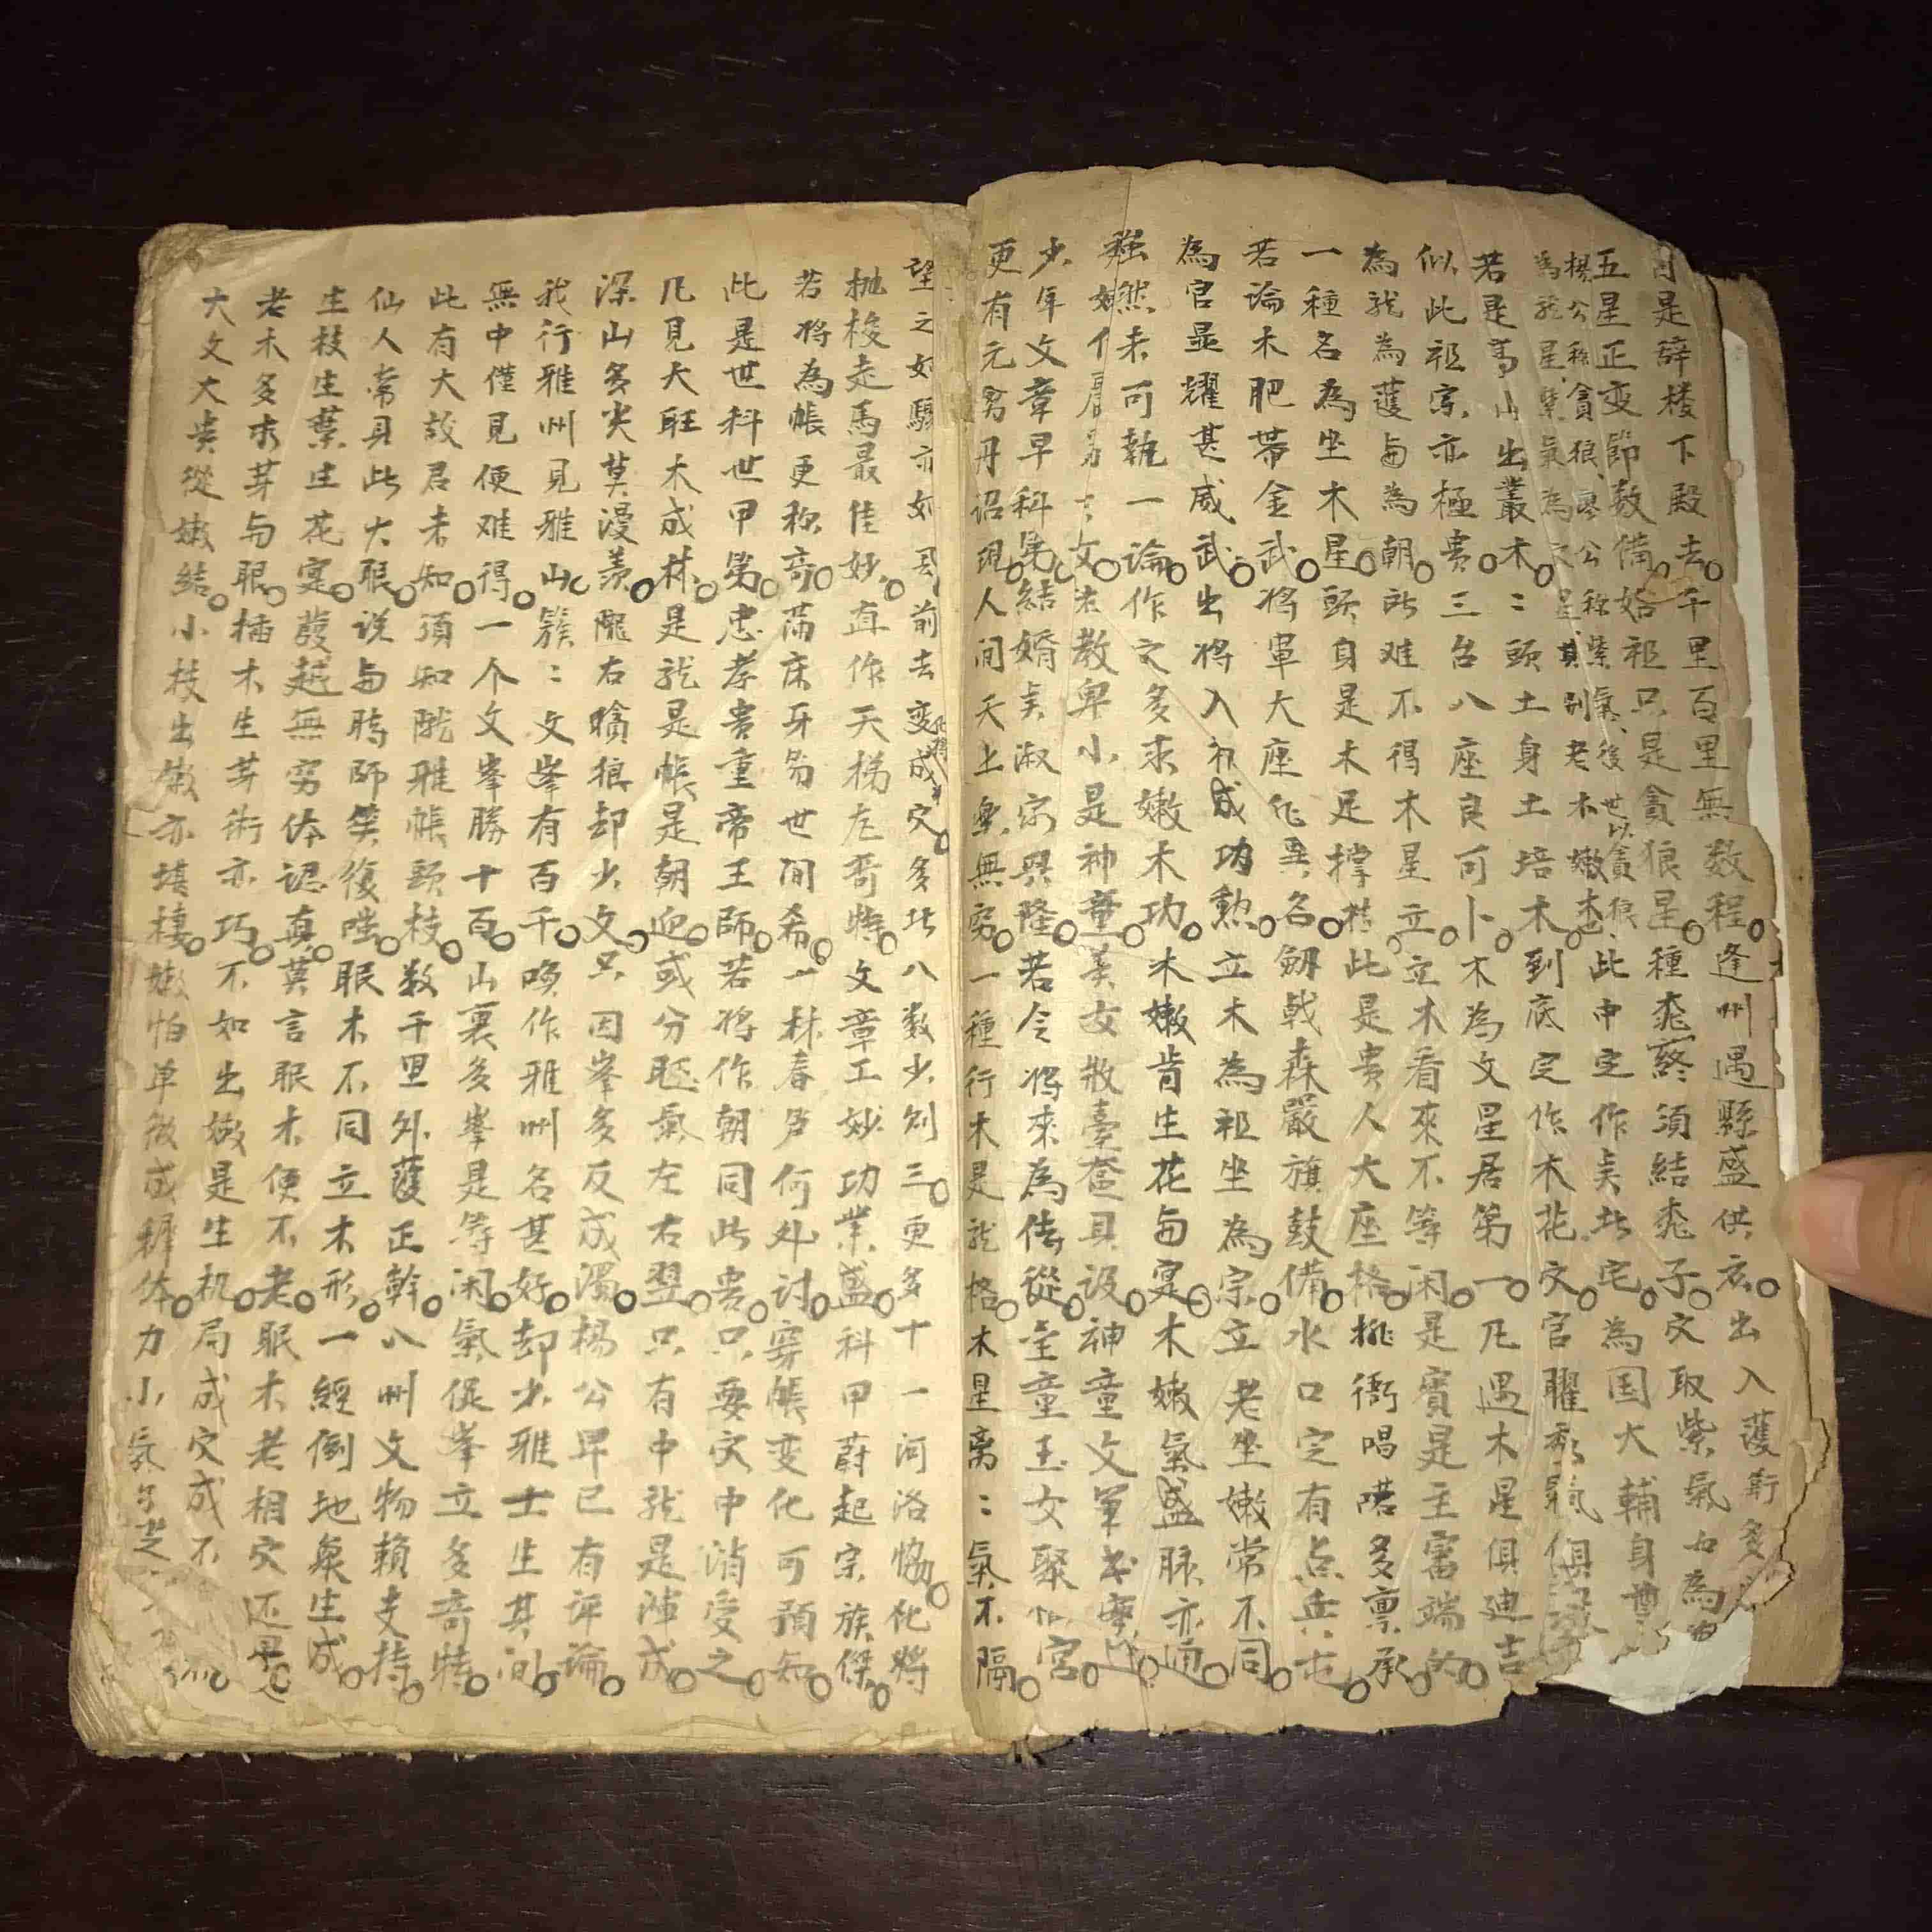 是辞楼下殿去千里百里無数程逢州遇縣盛供衣出入護衛多
五星正变節数備始祖只是貪狼星種桃終須結桃子文取紫氣力為
楊公称貪狼廖公称紫氣後世以貪狼
為龍星紫氣為文星其別老木嫩木也此中定作美此宅為国大輔身尊
若是高山出叢木〻頭土身土培木到底定作木花文官耀秀氣俱
似此祖宗亦極貴三台八座良可卜木為文星居第一凡遇木星俱迪吉
為龍為護與為朝所难不得木星立立木看來不等闲是賓是主富端的
一種名為坐木星頭身是木足撑持此是貴人大座格排衙唱喏多禀承
若論木肥帶金武将軍大座作異名劒戟森嚴旗鼓備水口定有点兵屯
為官显耀甚威武出将入相成功勲立木為祖坐為宗立老坐嫩常不同
雖然未可執一論作文多求嫩木功木嫩肯生花与寔木嫩氣盛脉亦通
文 教卑小是神童美女散臺奩具设神童文筆
少年文章早科第結婚美淑宗興隆若令将來為倩從金童玉女聚仙宮
更有元男丹诏現人间天上樂無窮一種行木是龍格木星离〻氣不隔
望之如 亦如 前去变成文多此八数少則三更多十一河洛 化将
抛梭走馬最佳妙直作天梯尤奇特文章工妙功業盛科甲蔚起宗族傑
若将為帳更称奇滿床牙笏世间希一林春 何外讨穿帳变化可預知
此是世科世甲第忠孝貴重帝王師若将作朝同此貴只要穴中消受之
凡見大旺木成林是龍是帳是朝迎或分旺氣左右翌只有中龍是渾成
深山多尖莫漫羡隴右 狼却少文只因峯多反成濁楊公早已有评論
我行雅州見雅山簇〻文峯有百千喚作雅州名甚好却少雅士生其间
無中僅見便难得一个文峯勝十百山裏多峯是等闲氣促峯立多奇特
此有大故君未知須知隴雅帳頭枝数千里外護正幹八州文物賴支持
仙人常具此大眼说与時師笑復嗤眠木不同立木形一經倒地氣生成
生枝生葉生花寔葭越無窮体認真莫言眠木便不老眠木老相穴还
老木多求芽与眼插木生芽術亦巧不如出嫩是生机局成穴成不
大文大貴從嫩結小枝出嫩亦堪棲嫩怕单微成稺体力小氣